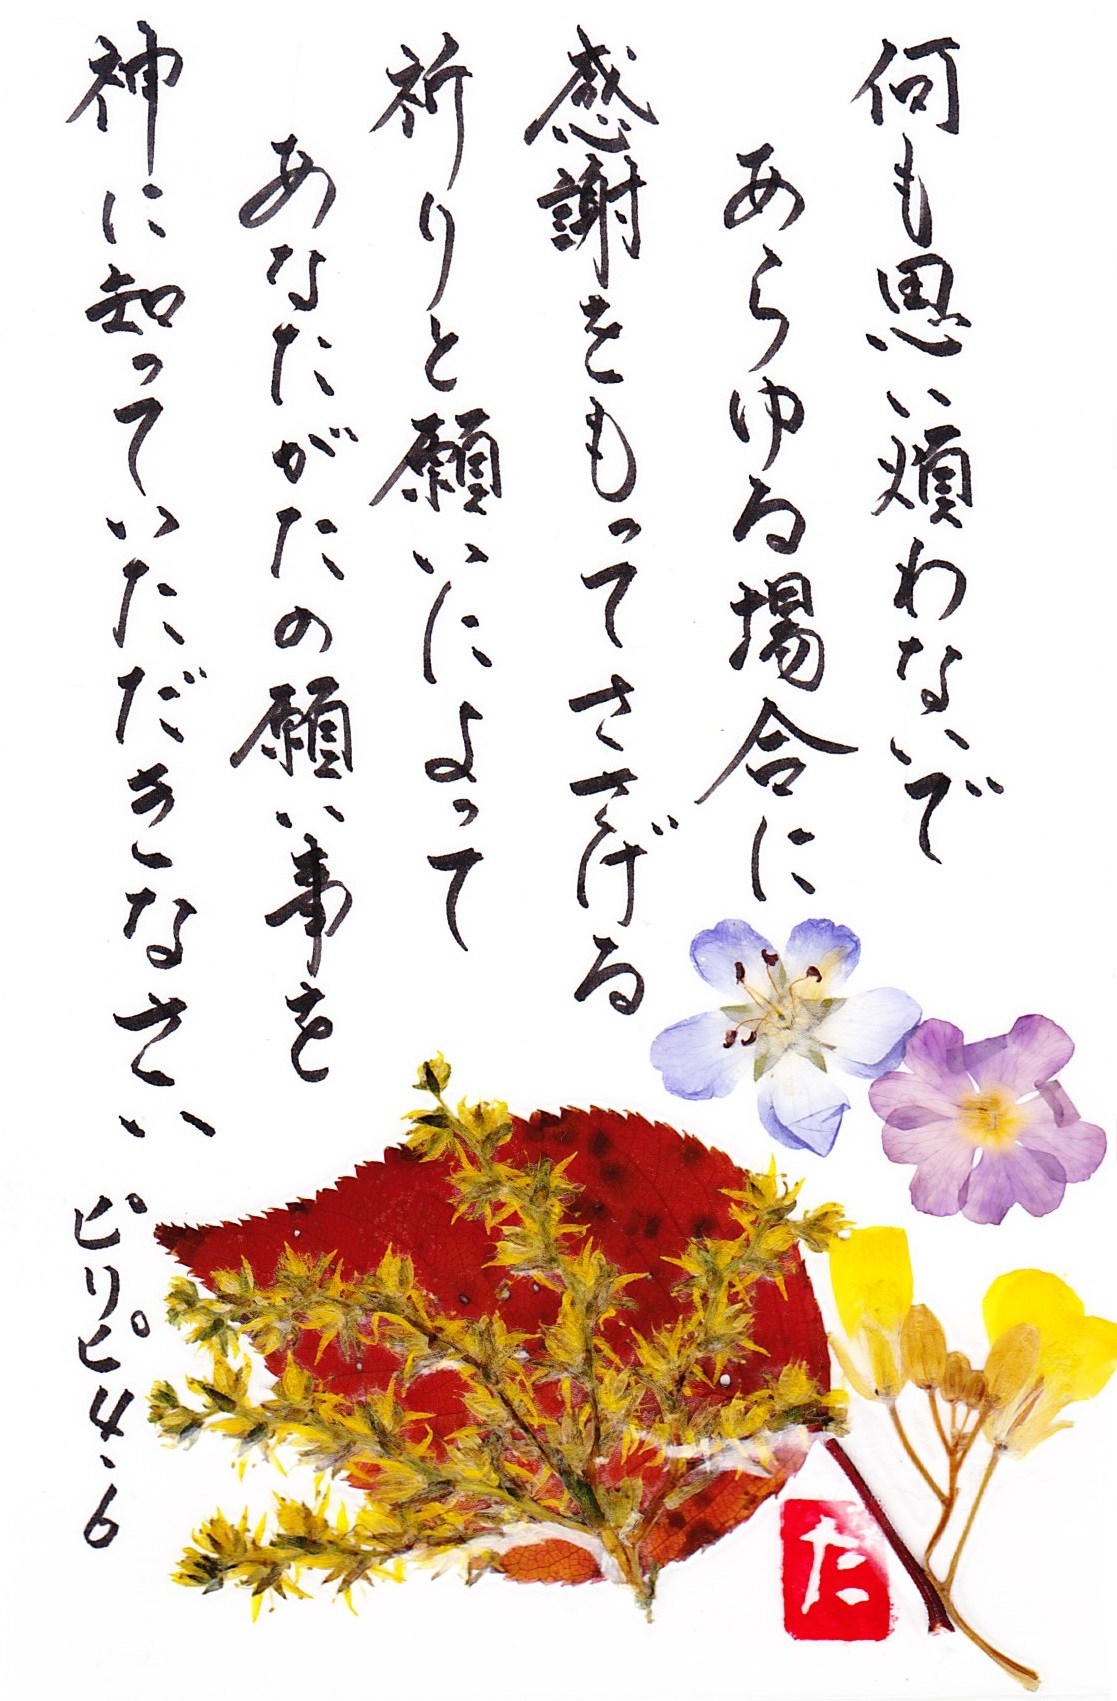 何も思い煩わないで
あらゆる場合に
感謝をもってささげる
祈りと願いによって
あなたがたの願い事を
神に知っていただきなさい
ピリピ4.6
た